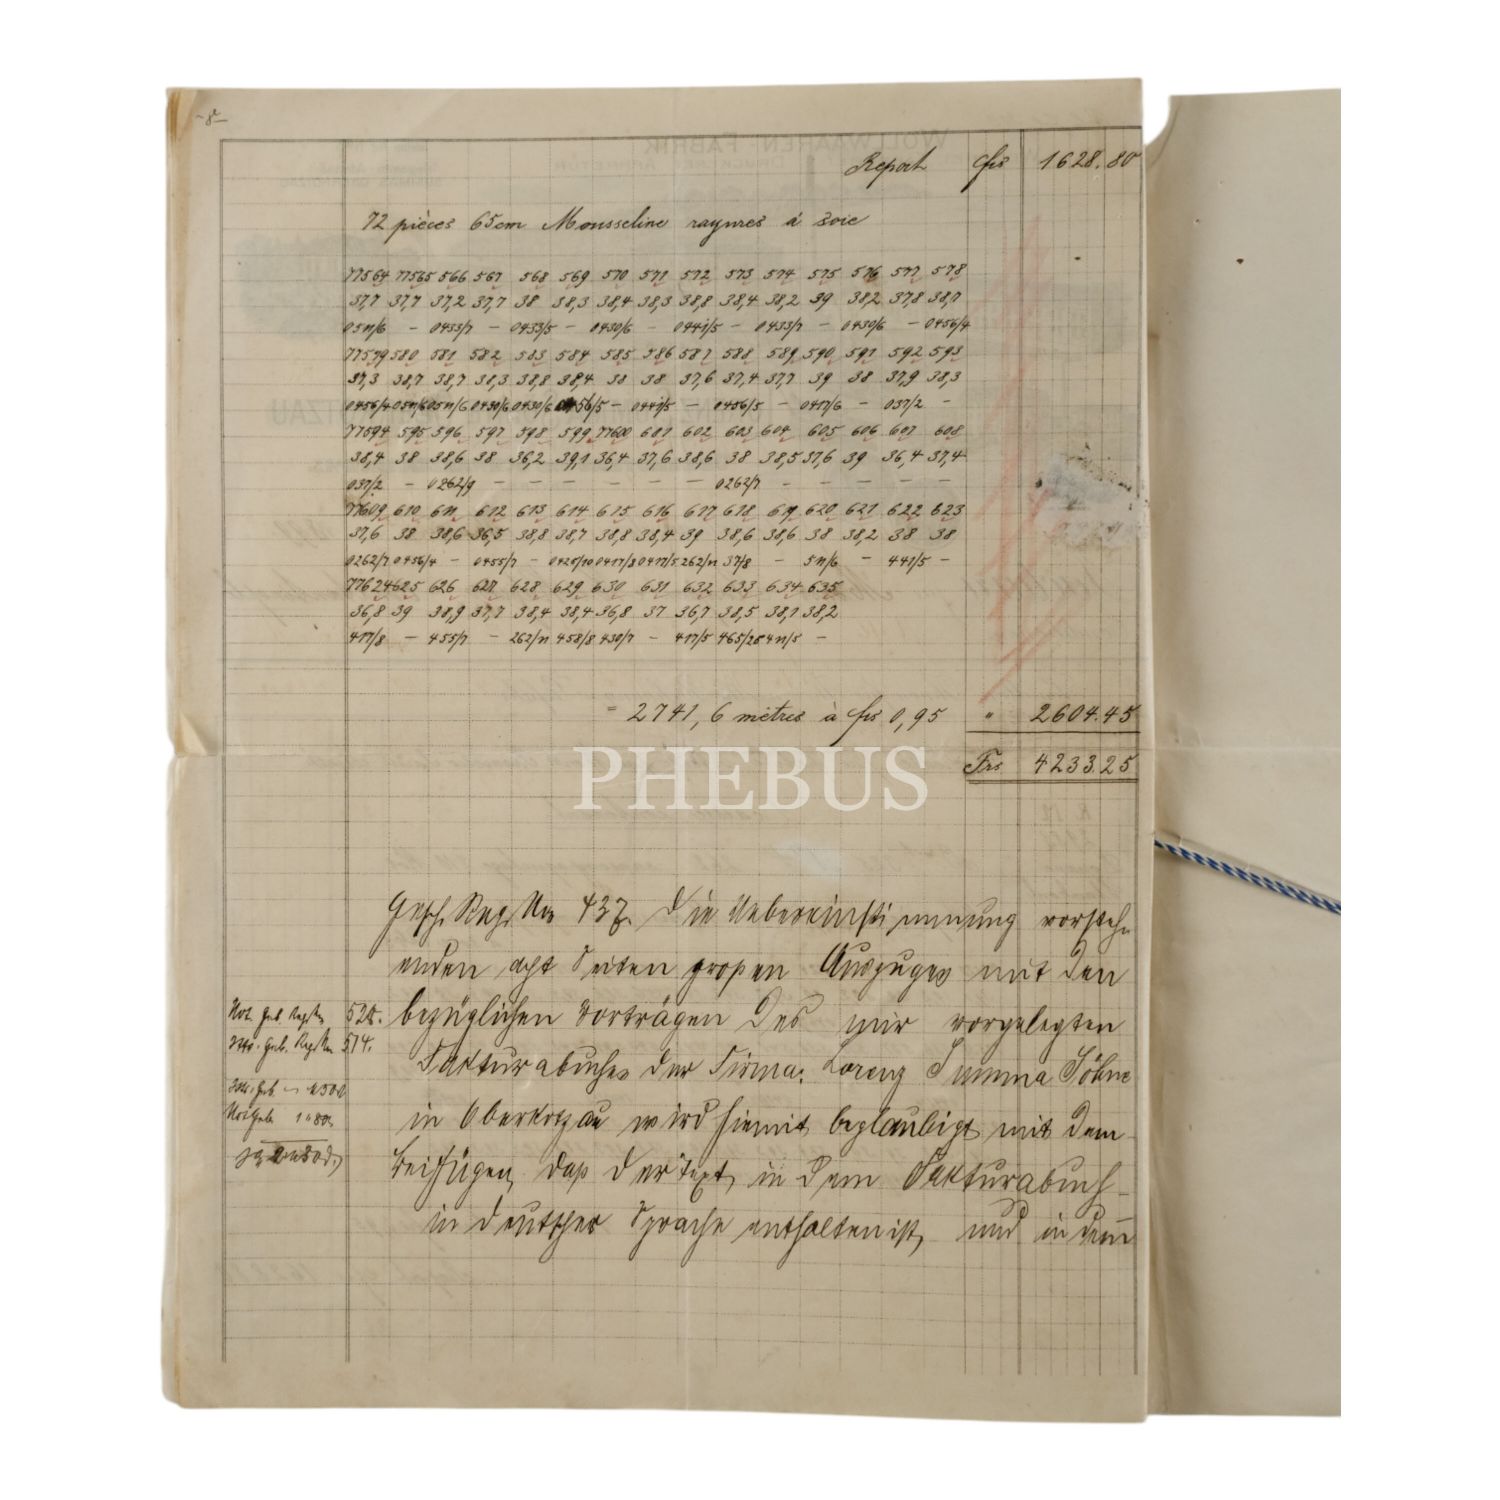 -8-
Report frs 1628.80
72 pièces 65cm Mousseline rayures à soie
77564 77565 566 567 568 569 570 571 572 573 574 575 576 577 578
37,7 37,7 37,2 37,7 38 38,3 38,4 38,3 38,8 38,4 38,2 39 38,2 37,8 38,1
0511/6 - 0455/7 - 0433/5 - 0430/6 - 0441/5 - 0433/7 - 0430/6 - 0456/4
77579 580 581 582 583 584 585 586 587 588 589 590 591 592 593
37,3 38,7 38,7 38,3 38,8 38,4 38 38 37,6 37,4 37,7 39 38 37,9 38,3
0456/4 0511/6 0511/6 0430/6 0430/6 0456/5 - 0441/5 - 0456/5 - 0417/6 - 037/2 -
77594 595 596 597 598 599 77600 601 602 603 604 605 606 607 608
38,4 38 38,6 38 36,2 39,1 36,4 37,6 38,6 38 38,5 37,6 39 36,4 37,4
037/2 - 0262/9 - - - - - - 0262/7 - - - - -
77609 610 611 612 613 614 615 616 617 618 619 620 621 622 623
37,6 38 38,6 36,5 38,8 38,7 38,8 38,4 39 38,6 38,6 38 38,2 38 38
0262/7 0456/4 - 0455/7 - 0420/10 0417/8 0417/5 262/11 37/8 - 511/6 - 441/5 -
77624 625 626 627 628 629 630 631 632 633 634 635
36,8 39 38,9 37,7 38,4 38,4 36,8 37 36,7 38,5 38,1 38,2
417/8 - 455/7 - 262/11 458/8 430/7 - 417/5 465/25 411/5 -
= 2741,6 mètres à frs 0,95 " 2604.45
Frs 4233.25
PHEBUS
Gesch. Reg. No 437. Die Uebereinstimmung vorsteh-
enden acht Seiten großen Auszuges mit den
Not. Geb. Reg. No 528. bezüglichen Vorträgen des mir vorgelegten
Geb. Reg. No 514. Fakturabuches der Firma: Lorenz Summa Söhne
in Oberkotzau wird hiemit beglaubigt mit dem
Beifügen, daß der Text, in dem Fakturabuch
in deutscher Sprache enthalten ist, und in dem